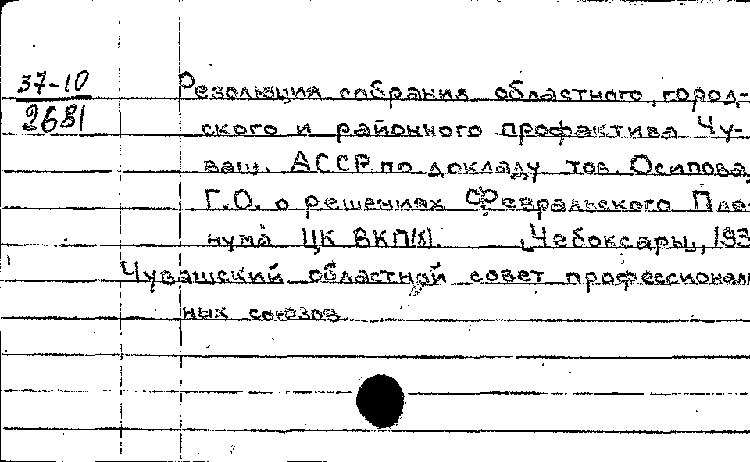 37-10
2681
Резолюция собрания областного, город-
ского и районного профактива Чу-
ваш. АССР по докладу тов. Осипова,
Г.О. о решениях Февральского Пле-
нума ЦК ВКП(б). [Чебоксары], 193
Чувашский областной совет профессионал
ных союзов